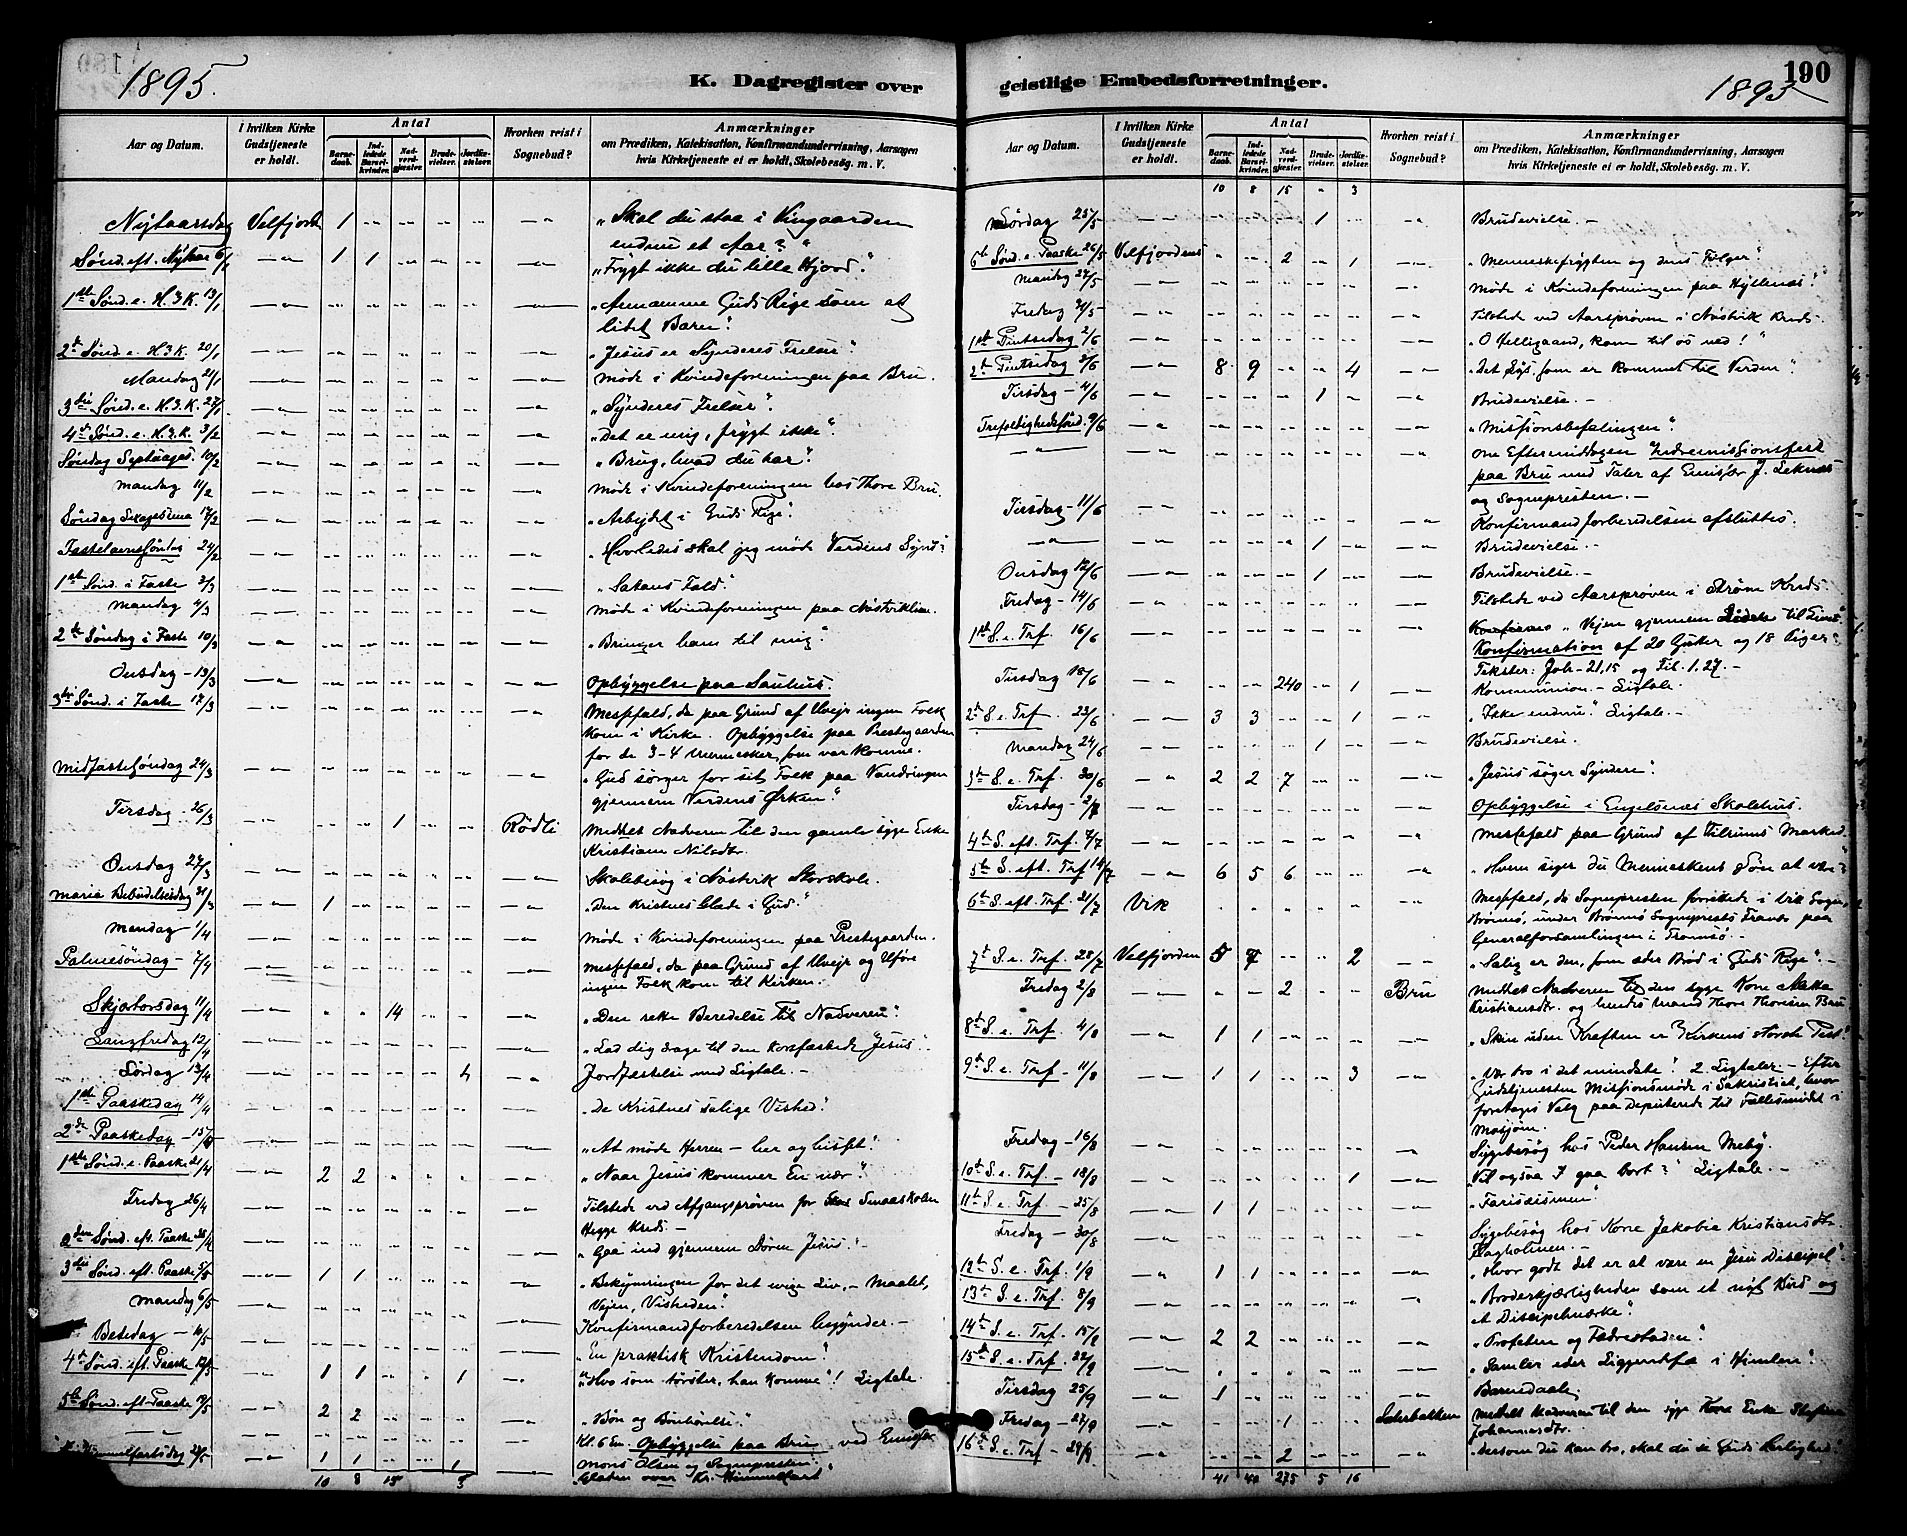 1895.
K. Dagregister over
Aar og Datum.
I hvilken Kirke Gudstjeneste er holdt.
Antal
Barnedaab.
Indledede Barselkvinder.
Nadverdgjester.
Brudevielser.
Jordfæstelser.
Hvorhen reist i Sognebud?
Anmærkninger
om Prædiken, Katekisation, Konfirmandundervisning, Aarsagen
hvis Kirketjeneste ei er holdt, Skolebesøg. m. V.
Nytaarsdag Velfjord 1 „Skal du staa i Vingaarden
endnu et Aar?“
Sønd. eft. Nytaar 6/1 1 1 „Frygt ikke du lille Hjord.“
1ste Sønd. e. H.3.K. 13/1 „Annamme Guds Rige som et
lidet Barn“.
2de Sønd. e. H.3.K. 20/1 „Jesus er Synderes Frelser“.
Mandag 21/1 Møde i Kvindeforeningen paa Bru.
3die Sønd. e. H.3.K. 27/1 „Synderes Frelser“.
4de Sønd. e. H.3.K. 3/2 „Det er mig, frygt ikke“.
Søndag Septuages. 10/2 „Brug, hvad du har“.
Mandag 11/2 Møde i Kvindeforeningen hos Thore Bru.
Søndag 17/2 „Arbejdet i Guds Rige“.
Fastelavnssøndag 24/2 „Hvorledes skal jeg møde Verdens Synd“
1ste Sønd. i Faste 3/3 „Satans Fald“.
Mandag 4/3 Møde i Kvindeforeningen paa Nøstviklien.
2de Søndag i Faste 10/3 „Bringer ham til mig“.
Onsdag 13/3 Opbyggelse paa Sauhus.
3die Sønd. i Faste 17/3 Messefald, da paa Grund af Uvejr ingen Folk
kom i Kirke. Opbyggelse paa Prestegaarden
for de 3-4 Mennesker, som var komne.
Midfastesøndag 24/3 „Gud sørger for sit Folk paa Vandringen
gjennem Verdens Ørken“.
Tirsdag 26/3 1 Rødli Meddelt Nadveren til den gamle syge Enke
Kristiane Nilsdtr.
Onsdag 27/3 Skolebesøg i Nøstvik Storskole.
Maria Bebudelsesdag 31/3 1 „Den Kristnes Glæde i Gud“.
Mandag 1/4 Møde i Kvindeforeningen paa Prestegaarden.
Palmesøndag 7/4 Messefald, da paa Grund af Uvejr og Uføre
ingen Folk kom til Kirken.
Skjærtorsdag 11/4 14 „Den rette Beredelse til Nadveren“.
Langfredag 12/4 „Lad dig drage til den korsfæstede Jesus“.
Lørdag 13/4 Jordfæstelse med Ligtale.
1ste Paaskedag 14/4 „De Kristnes salige Vished“.
2de Paaskedag 15/4 „At møde Herren – her og hisset“.
1ste Sønd. e. Paaske 21/4 2 2 „Naar Jesus kommer En nær“.
Fredag 26/4 Tilstede ved Afgangsprøven for Smaaskolen
Hegge Kreds.
2den Sønd. eft. Paaske 28/4 „Gaa ind gjennem Døren Jesus“.
3die Sønd. eft. Paaske 5/5 1 1 „Bekymringen for det evige Liv, – Maalet,
Vejen, Visheden“.
Mandag 6/5 Konfirmandforberedelsen begynder.
Bededag 10/5 „En praktisk Kristendom“.
4de Sønd. eft. Paaske 12/5 1 1 1 „Hvo som tørster, han komme“! Ligtale
5te Sønd. eft. Paaske 19/5 2 2 „Bøn og Bønhørelse“.
Kl. 6 Em. Opbyggelse paa Bru ved Emissær
Mons Olsen og Sognepresten.
Kr. Himmelfartsdag 1 1 1 Glæden over Kr. Himmelfart“.
10 8 15 3
geistlige Embedsforretninger.
190
1895
Aar og Datum.
I hvilken Kirke Gudstjeneste er holdt.
Antal
Barnedaab.
Indledede Barselkvinder.
Nadverdgjester.
Brudevielser.
Jordfæstelser.
Hvorhen reist i Sognebud?
Anmærkninger
om Prædiken, Katekisation, Konfirmandundervisning, Aarsagen
hvis Kirketjeneste ei er holdt, Skolebesøg. m. V.
10 8 15 „ 3
Lørdag 25/5 1 Brudevielse.
6te Sønd. e. Paaske 26/5 Velfjorden 2 1 „Menneskefrygten og dens Følger“.
Mandag 27/5 Møde i Kvindeforeningen paa Hyllenæs“.
Fredag 31/5 Tilstede ved Aarsprøven i Nøstvik Kreds.
1ste Pintsedag 2/6 „O Helligaand, kom til os ned!“
2de Pintsedag 3/6 8 9 4 „Det Lys som er kommet til Verden“
Tirsdag 4/6 1 Brudevielse.
Trefoldighedssønd. 9/6 „Missionsbefalingen“.
Om Eftermiddagen Indremissionsfest
paa Bru med Taler af Emissær J. Leknæs
og Sognepresten.
Tirsdag 11/6 Konfirmandforberedelsen afsluttes.
1 Brudevielse.
Onsdag 12/6 1 Brudevielse.
Fredag 14/6 Tilstede ved Aarsprøven i Strøm Kreds.
1ste S. e. Trf. 16/6 „Vejen gjennem Lidelse til Livet“
Konfirmation af 20 Gutter og 18 Piger.
Tekster: Joh. 21,15 og Fil. 1,27.
Tirsdag 18/6 240 1 Kommunion. – Ligtale.
2de S. e. Trf. 23/6 3 3 1 „Ikke endnu“. Ligtale.
Mandag 24/6 1 Brudevielse.
3die S. e. Trf. 30/6 2 2 7 „Jesus søger Syndere“.
Tirsdag 2/7 Opbyggelse i Engelsnæs Skolehus.
4de S. eft. Trf. 7/7 Messefald paa Grund af Tilrums Marked.
5te S. eft. Trf. 14/7 6 5 6 „Hvem siger du Menneskens Søn at være“
6te S. eft. Trf. 21/7 Vik Messefald, da Sognepresten forrettede i Vik Sogn,
Brønnø, under Brønnø Sogneprests Fravær paa
Generalforsamlingen i Tromsø.
7de S. e. Trf. 28/7 Velfjorden 5 4 2 „Salig er den, som æder Brød i Guds Rige“.
Fredag 2/8 2 Bru Meddelt Nadveren til den syge Kone
Kristiansdtr. og hendes Mand Thore Thoresen Bru
8de S. e. Trf. 4/8 1 1 „Skin uden Kraften er Kirkens største Pest“.
9de S. e. Trf. 11/8 1 1 3 „Vær tro i det mindste“! 2 Ligtaler – Efter
Gudstjenesten Missionsmøde i Sakristiet, hvor
foretages Valg paa Deputerede til Fællesmødet i
Mosjøen.
Fredag 16/8 Sygebesøg hos Peder Hansen Meby.
10de S. e. Trf. 18/8 1 „Vil ogsaa I gaa bort?“ Ligtale.
11te S. e. Trf. 25/8 1 1 „Farisæismen“
Fredag 30/8 Sygebesøg hos Kone Jakobia Kristiansdtr.
Flagholmen.
12te S. e. Trf. 1/9 1 1 „Hvor godt det er at være en Jesu Discipel“
13de S. e. Trf. 8/9 „Broderkjærligheden som et nyt Bud og
et Discipelmærke“.
14de S. e. Trf. 15/9 2 2 „Profeten og Fædrestaden“.
15de S. e. Trf. 22/9 „Samler eder Liggendefæ i Himlen“.
Tirsdag 25/9 1 Barnedaab.
Fredag 27/9 1 Sæterbakken Meddelt Nadveren til den syge Kone Enke
Johannesdtr.
16de S. e. Trf. 29/9 2 „Dersom du kan tro, skal du se Guds Herlighed“.
41 40 275 5 16